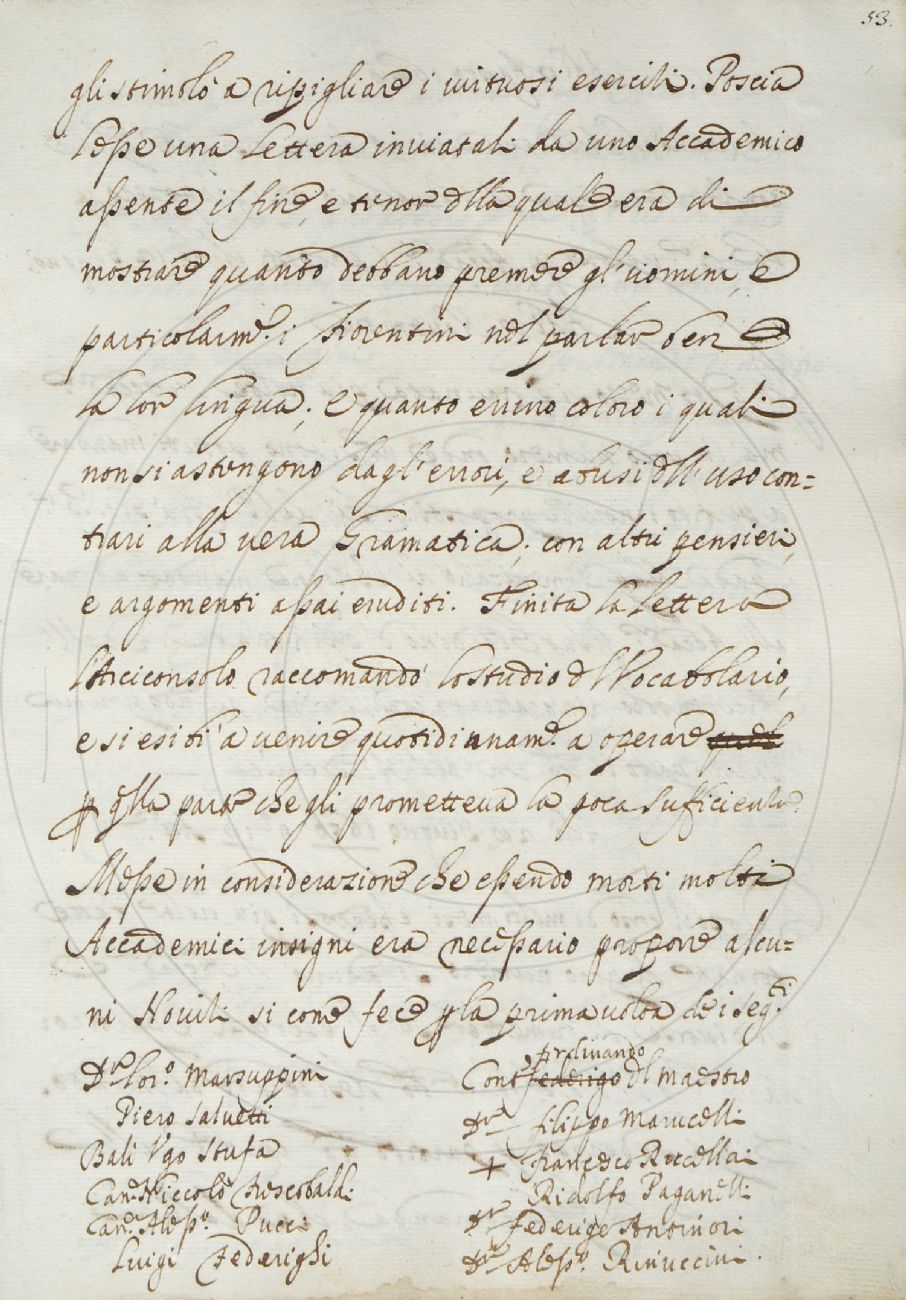 53.
gli stimolò a ripigliare i virtuosi esercizi. Poscia
lesse una Lettera inviatali da uno Accademico
assente il fine, e tenor della quale era di
mostrare quanto debbano premere gl'uomini, e
particolarm.e i Fiorentini nel parlar bene
la lor lingua; e quanto errino coloro i quali
non si astengono dagl'errori, e abusi dell'uso con=
trari alla vera Gramatica; con altri pensieri,
e argomenti assai eruditi. Finita la Lettera
l'Arciconsolo raccomandò lo studio del Vocabolario,
e si esibì a venire quotidianam.e a operare
p qlla parte che gli prometteva la poca sufficienza
Messe in considerazione che essendo morti molti
Accademici insigni era necessario proporre alcu=
ni Novizi si come fece p la prima volta de i seg.ti
Dr. Lor.o Marsuppini
Piero Salvetti
Bali Ugo Stufa
Can.e Niccolò Frescobaldi
Can.e Aless.o Pucci
Luigi Federighi
Ferdinando
Conte Federigo del Maestro
Dr. Filippo Marucelli
+ Francesco Rucellai
Ridolfo Paganelli
Dr. Federigo Antinori
Dr. Aless.o Rinuccini.